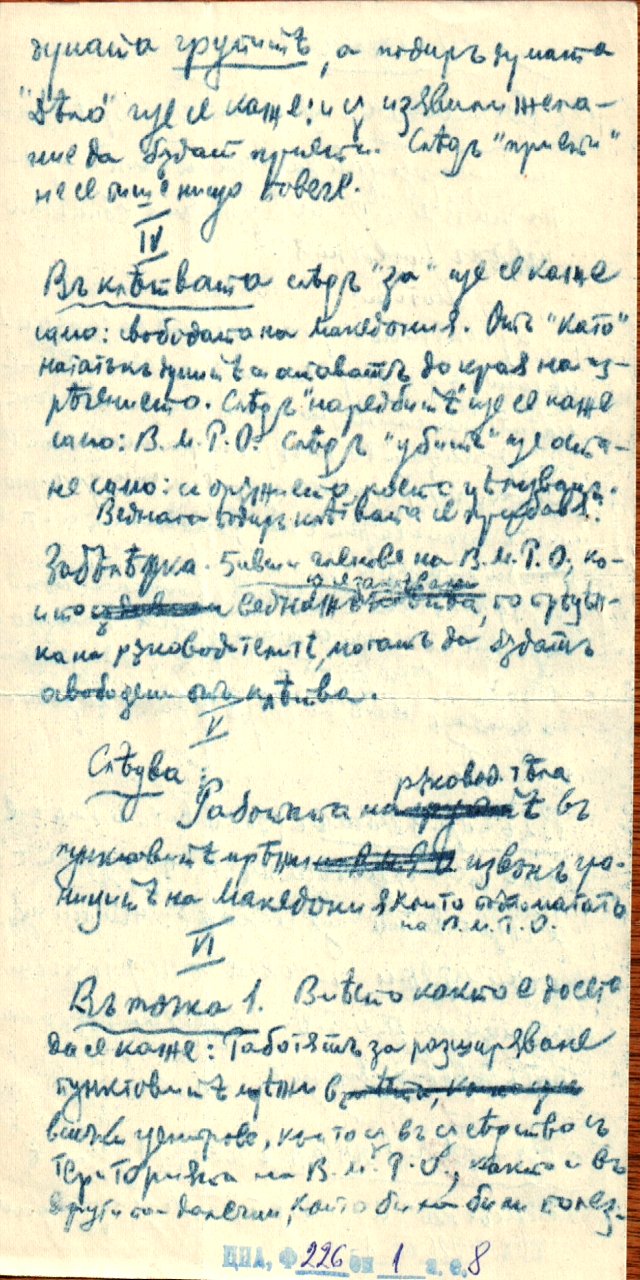 думата групитѣ, а подиръ думата
"дѣло" ще се каже: и сѫ изявили жела-
ние да бѫдат приети. Слѣдъ "приети"
не се пише нищо повече.
IV
Въ клѣтвата слѣдъ "за" ще се каже
само: свободата на Македония. Отъ "като"
нататъкъ думитѣ си оставатъ до края на из-
рѣчението. Слѣдъ "наредбитѣ" ще се каже
само: В.М.Р.О. Слѣдъ "убитъ" ще оста-
не само: с орѫжието, което цѣлувамъ.
Веднага подиръ клѣтвата се прибавя:
Забѣлѣжка. Бивши членове на В.М.Р.О, ко-
ито сѫ веднажъ, по прѣцѣн-
ка на рѫководителитѣ, могатъ да бѫдатъ
освободени отъ клѣтва.
V
Слѣдва:
рѫковод. тѣла
Работата на въ
пунктовитѣ мрѣжи извънъ гра-
ницитѣ на Македония които подпомагатъ
на В.М.Р.О.
VI
Въ точка 1. Вмѣсто както е досега
да се каже: Работятъ за разширяване
пунктовитѣ мрѣжи въ
всички центрове, които сѫ въ съседство съ
територията на В.М.Р.О., както и въ
други по далечни, които биха били полез-
ЦПА, Ф 226 оп 1 а. е. 8